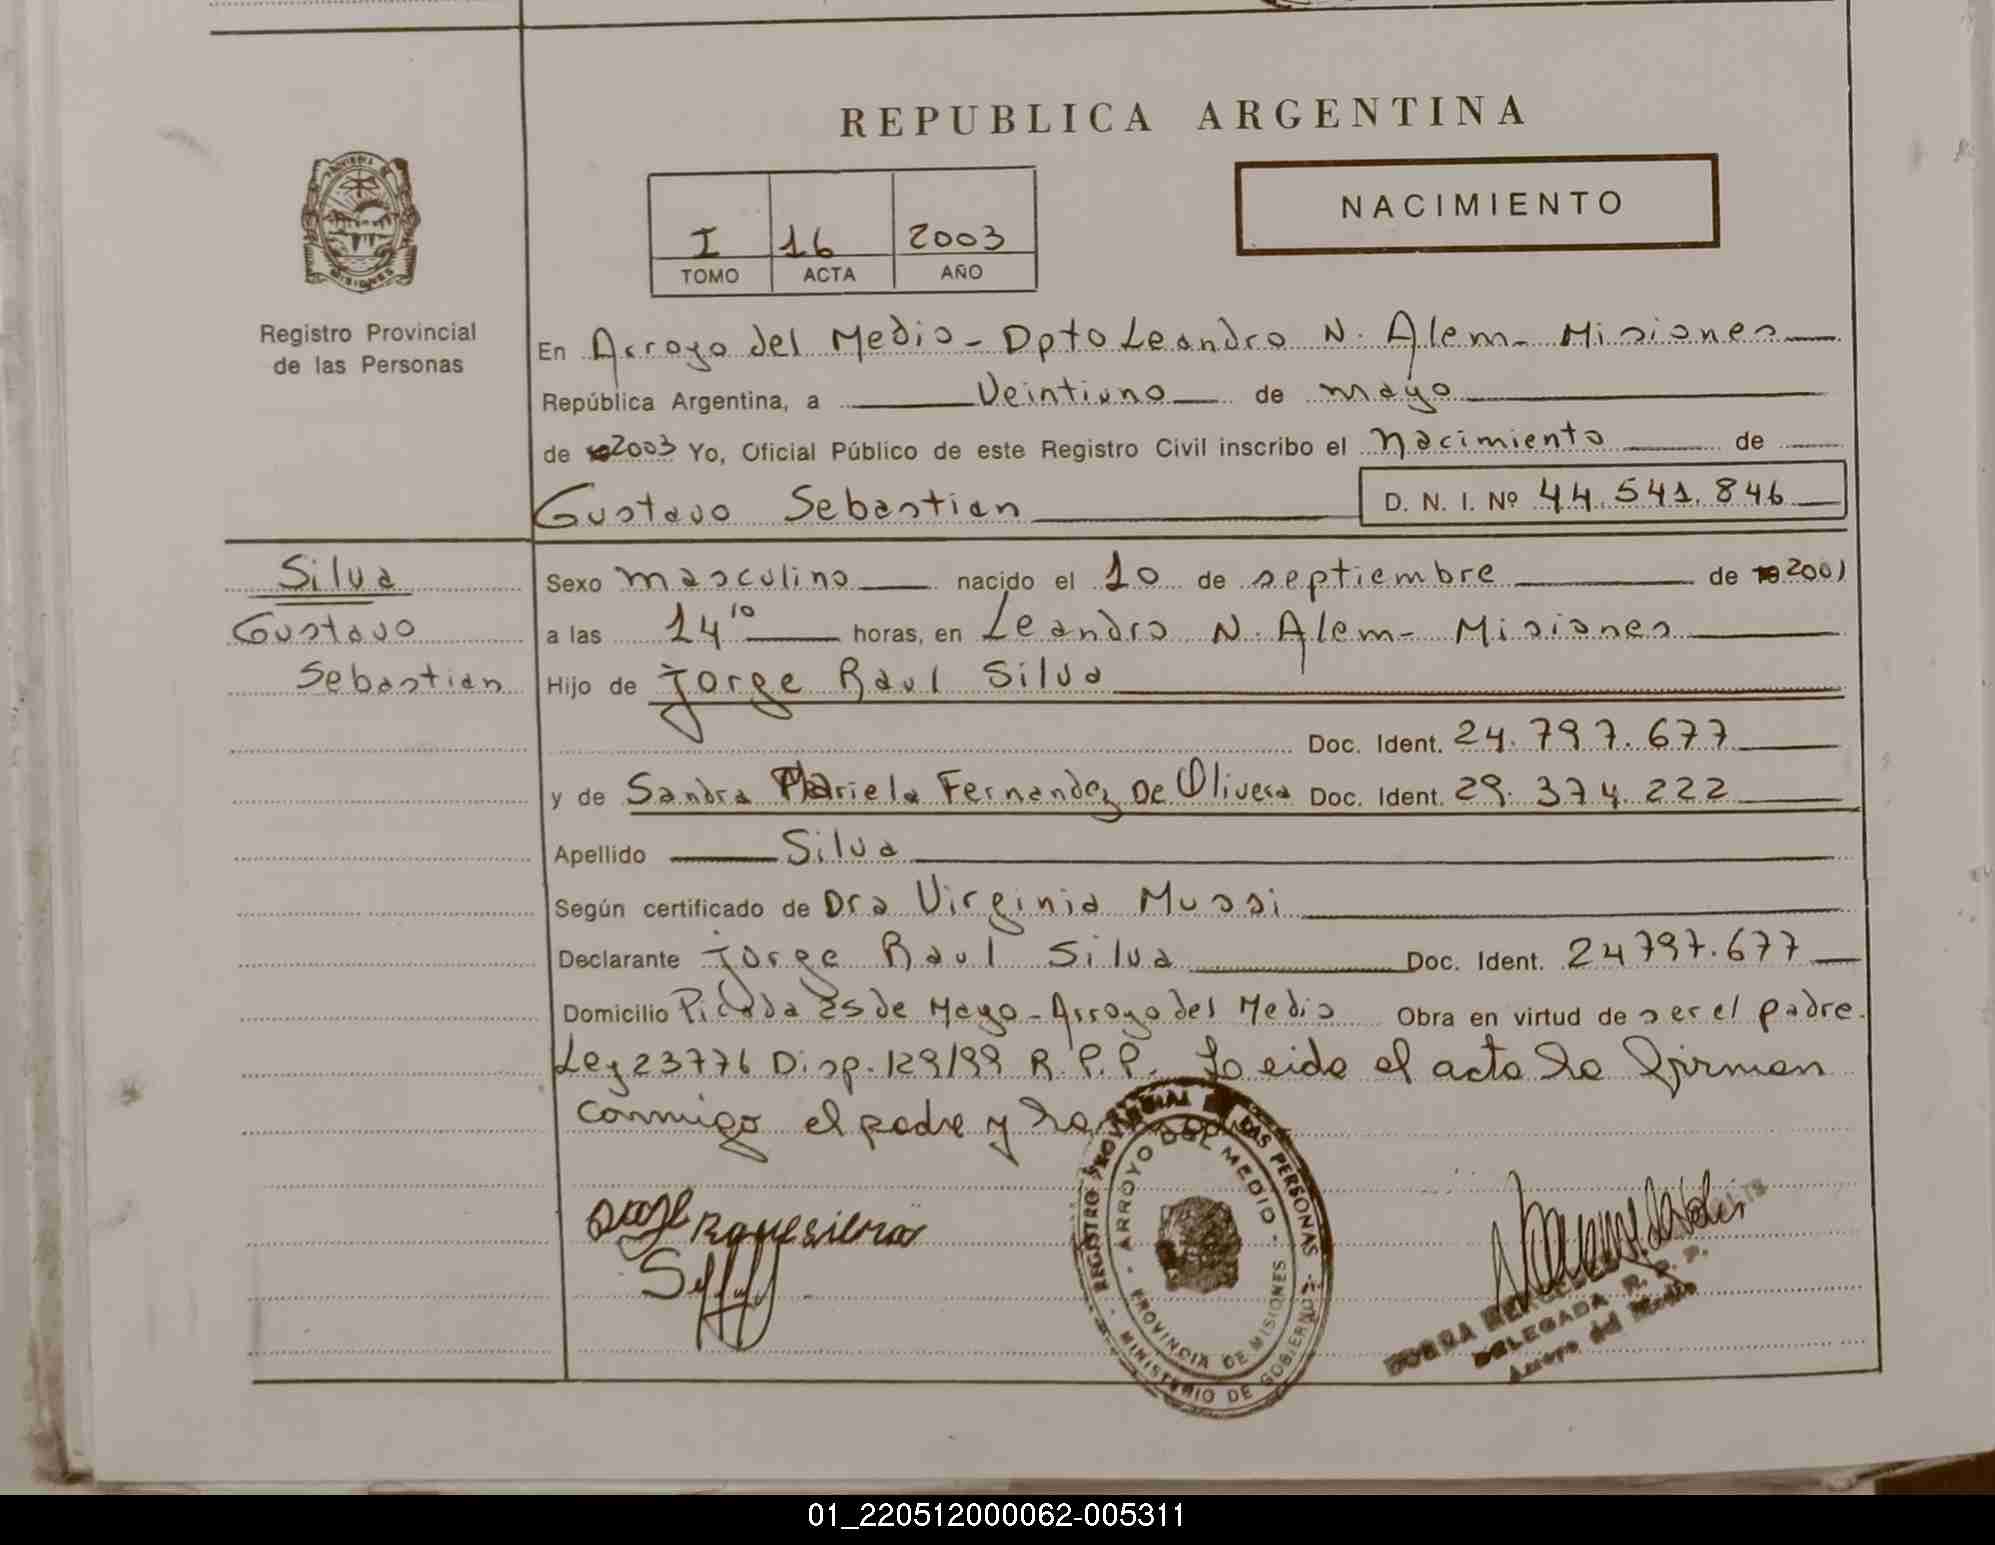 REPUBLICA ARGENTINA
NACIMIENTO
I 16 2003
TOMO ACTA AÑO
PROVINCIA DE MISIONES
Registro Provincial
de las Personas
En Arroyo del Medio - Dpto Leandro N. Alem - Misiones
República Argentina, a Veintiuno de mayo
de 2003 Yo, Oficial Público de este Registro Civil inscribo el Nacimiento de
Gustavo Sebastian D. N. I. Nº 44.541.846
Silva
Gustavo
Sebastian
Sexo masculino nacido el 10 de septiembre de 2001
a las 14 10 horas, en Leandro N. Alem - Misiones
Hijo de Jorge Raul Silva
Doc. Ident. 24.797.677
y de Sandra Mariela Fernandez De Olivera Doc. Ident. 29.374.222
Apellido Silva
Según certificado de Dra Virginia Mussi
Declarante Jorge Raul Silva Doc. Ident. 24797.677
Domicilio Picada 25 de Mayo - Arroyo del Medio Obra en virtud de ser el padre.
Ley 23776 Disp. 129/99 R.P.P. Leida el acta la firman
conmigo el padre y la
REGISTRO PROVINCIAL DE LAS PERSONAS
ARROYO DEL MEDIO
PROVINCIA DE MISIONES
MINISTERIO DE GOBIERNO
DELEGADA R. P. P.
Arroyo del Medio
01_220512000062-005311